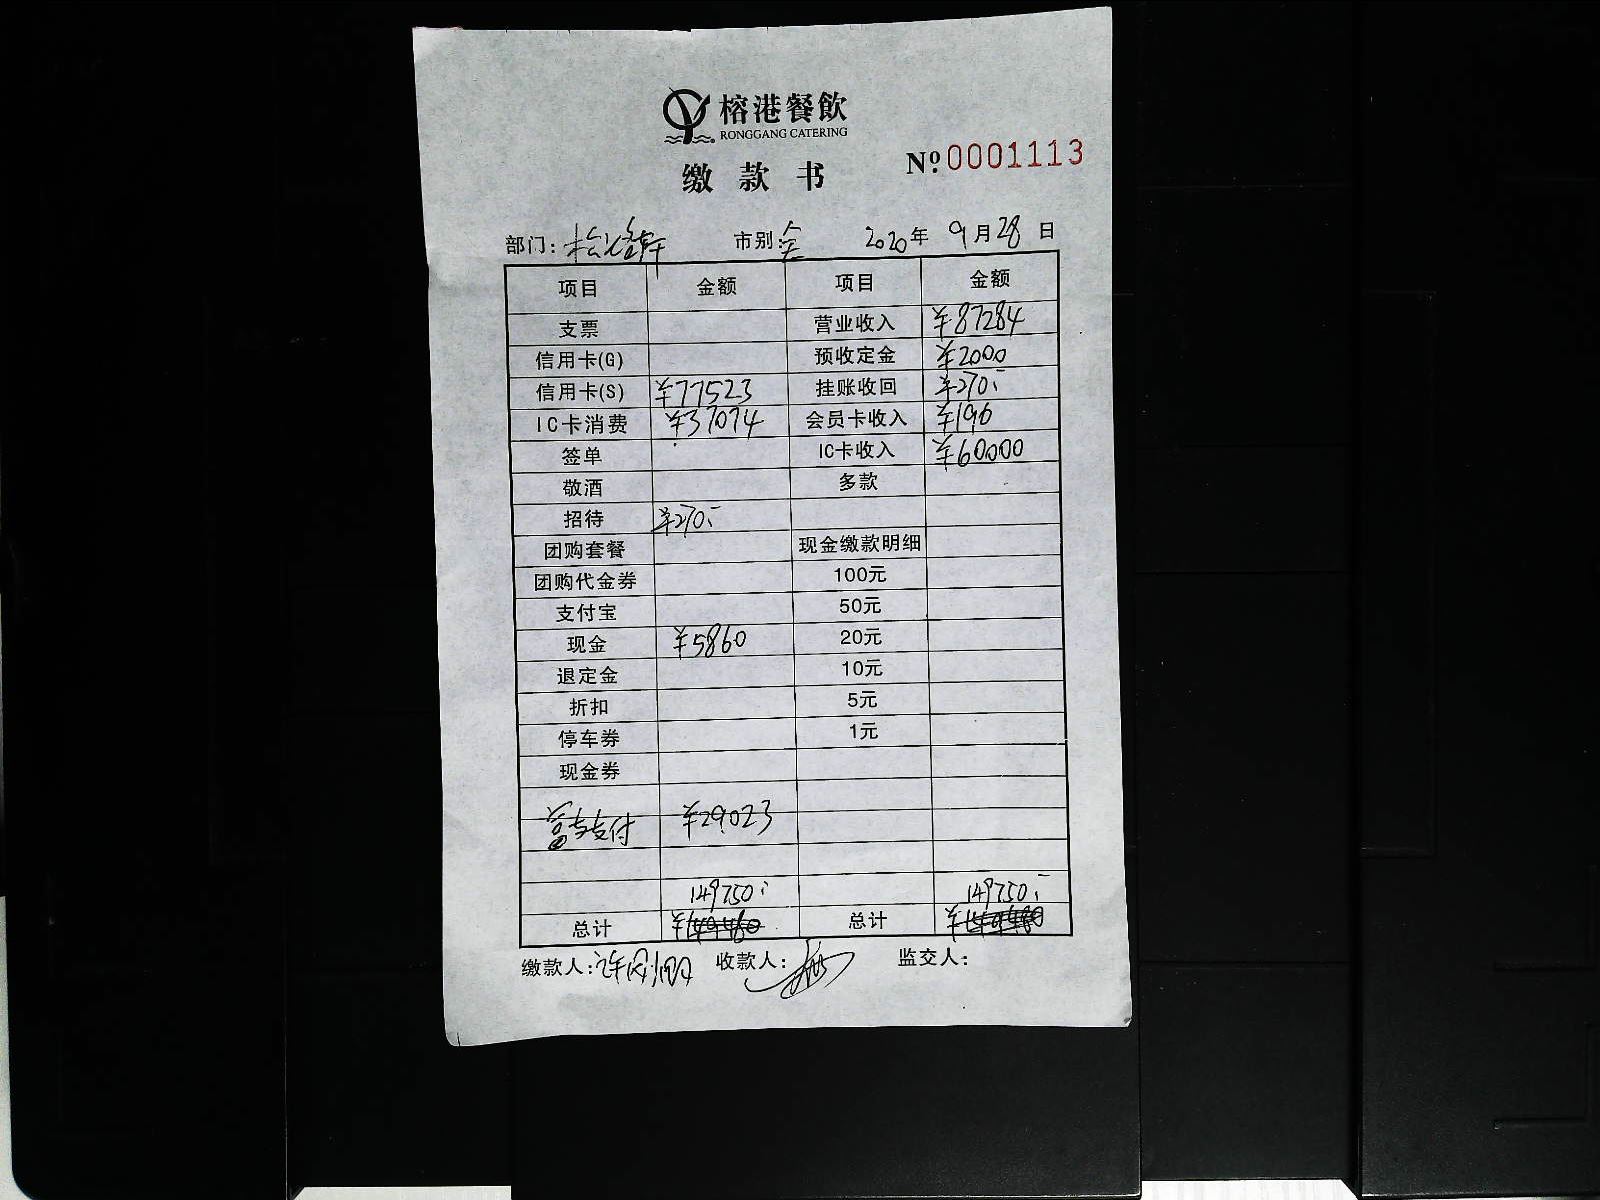 榕港餐飲
RONGGANG CATERING
缴款书
№:0001113
部门: 市别: 全 2020年 9月28日
项目 金额 项目 金额
支票 营业收入 ¥87284
信用卡(G) 预收定金 ¥2000
信用卡(S) ¥77523 挂账收回 ¥270.-
IC卡消费 ¥37074 会员卡收入 ¥196
签单 IC卡收入 ¥60000
敬酒 多款
招待 ¥270.-
团购套餐 现金缴款明细
团购代金券 100元
支付宝 50元
现金 ¥5860 20元
退定金 10元
折扣 5元
停车券 1元
现金券
支付 ¥29023
149750.- 149750.-
总计 总计
缴款人: 收款人: 监交人: